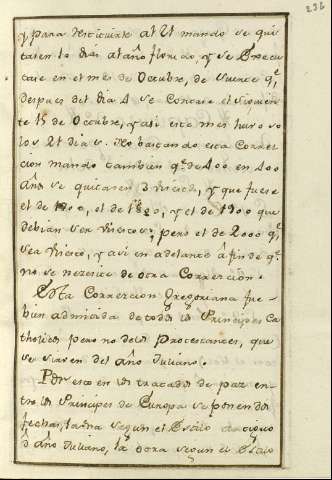 232
y para restituirle al 21 mando se qui
tasen 10 dias al año fluido, y se Execu
tase en el mes de Octubre, de suerte q.e
despues del dia 4 se Contase el siguien
te 15 de Octubre, y asi este mes tuvo so
los 21 dias. No bastando esta Correc
cion mando tambien q.e de 400 en 400
años se quitasen 3 visiesto, y que fuese
el de 1700, el de 1800, y el de 1900 que
debian ser visiestos; pero el de 2000 q.e
sea visiesto, y asi en adelante á fin de q.e
no se necesite de otra Correccion.
Esta Correccion Gregoriana fue
bien admitida de todos los Principes Ca
tholicos pero no de los Protestantes, que
se sirven del año Juliano.
Por esto en los tratados de paz en
tre los Principes de Europa se ponen dos
fechas, la una segun el Estilo antiguo
ô año Juliano, la otra segun el Estilo